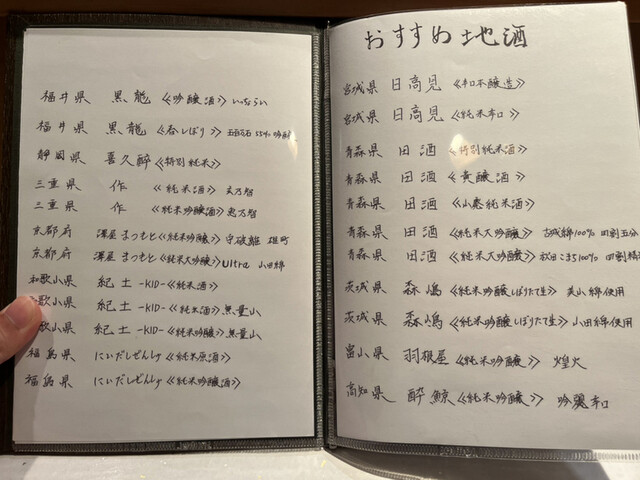 おすすめ地酒
宮城県 日高見 《辛口本醸造》
宮城県 日高見 《純米辛口》
青森県 田酒 《特別純米酒》
青森県 田酒 《貴醸酒》
青森県 田酒 《山廃純米酒》
青森県 田酒 《純米大吟醸》 古城錦100% 四割五分
青森県 田酒 《純米大吟醸》 秋田こまち100% 四割
茨城県 森嶋 《純米吟醸しぼりたて生》 美山錦使用
茨城県 森嶋 《純米吟醸しぼりたて生》 山田錦使用
富山県 羽根屋 《純米吟醸》 煌火
高知県 酔鯨 《純米吟醸》 吟麗辛口
福井県 黒龍 《吟醸酒》 いっちょらい
福井県 黒龍 《春しぼり》 五百万石 55% 吟醸
静岡県 喜久酔 《特別純米》
三重県 作 《純米酒》 玄乃智
三重県 作 《純米吟醸酒》 恵乃智
京都府 澤屋まつもと 《純米吟醸》 守破離 雄町
京都府 澤屋まつもと 《純米大吟醸》 Ultra 山田錦
和歌山県 紀土 -KID- 《純米酒》
歌山県 紀土 -KID- 《純米酒》 無量山
歌山県 紀土 -KID- 《純米吟醸》 無量山
福島県 にいだしぜんしゅ 《純米原酒》
福島県 にいだしぜんしゅ 《純米吟醸酒》